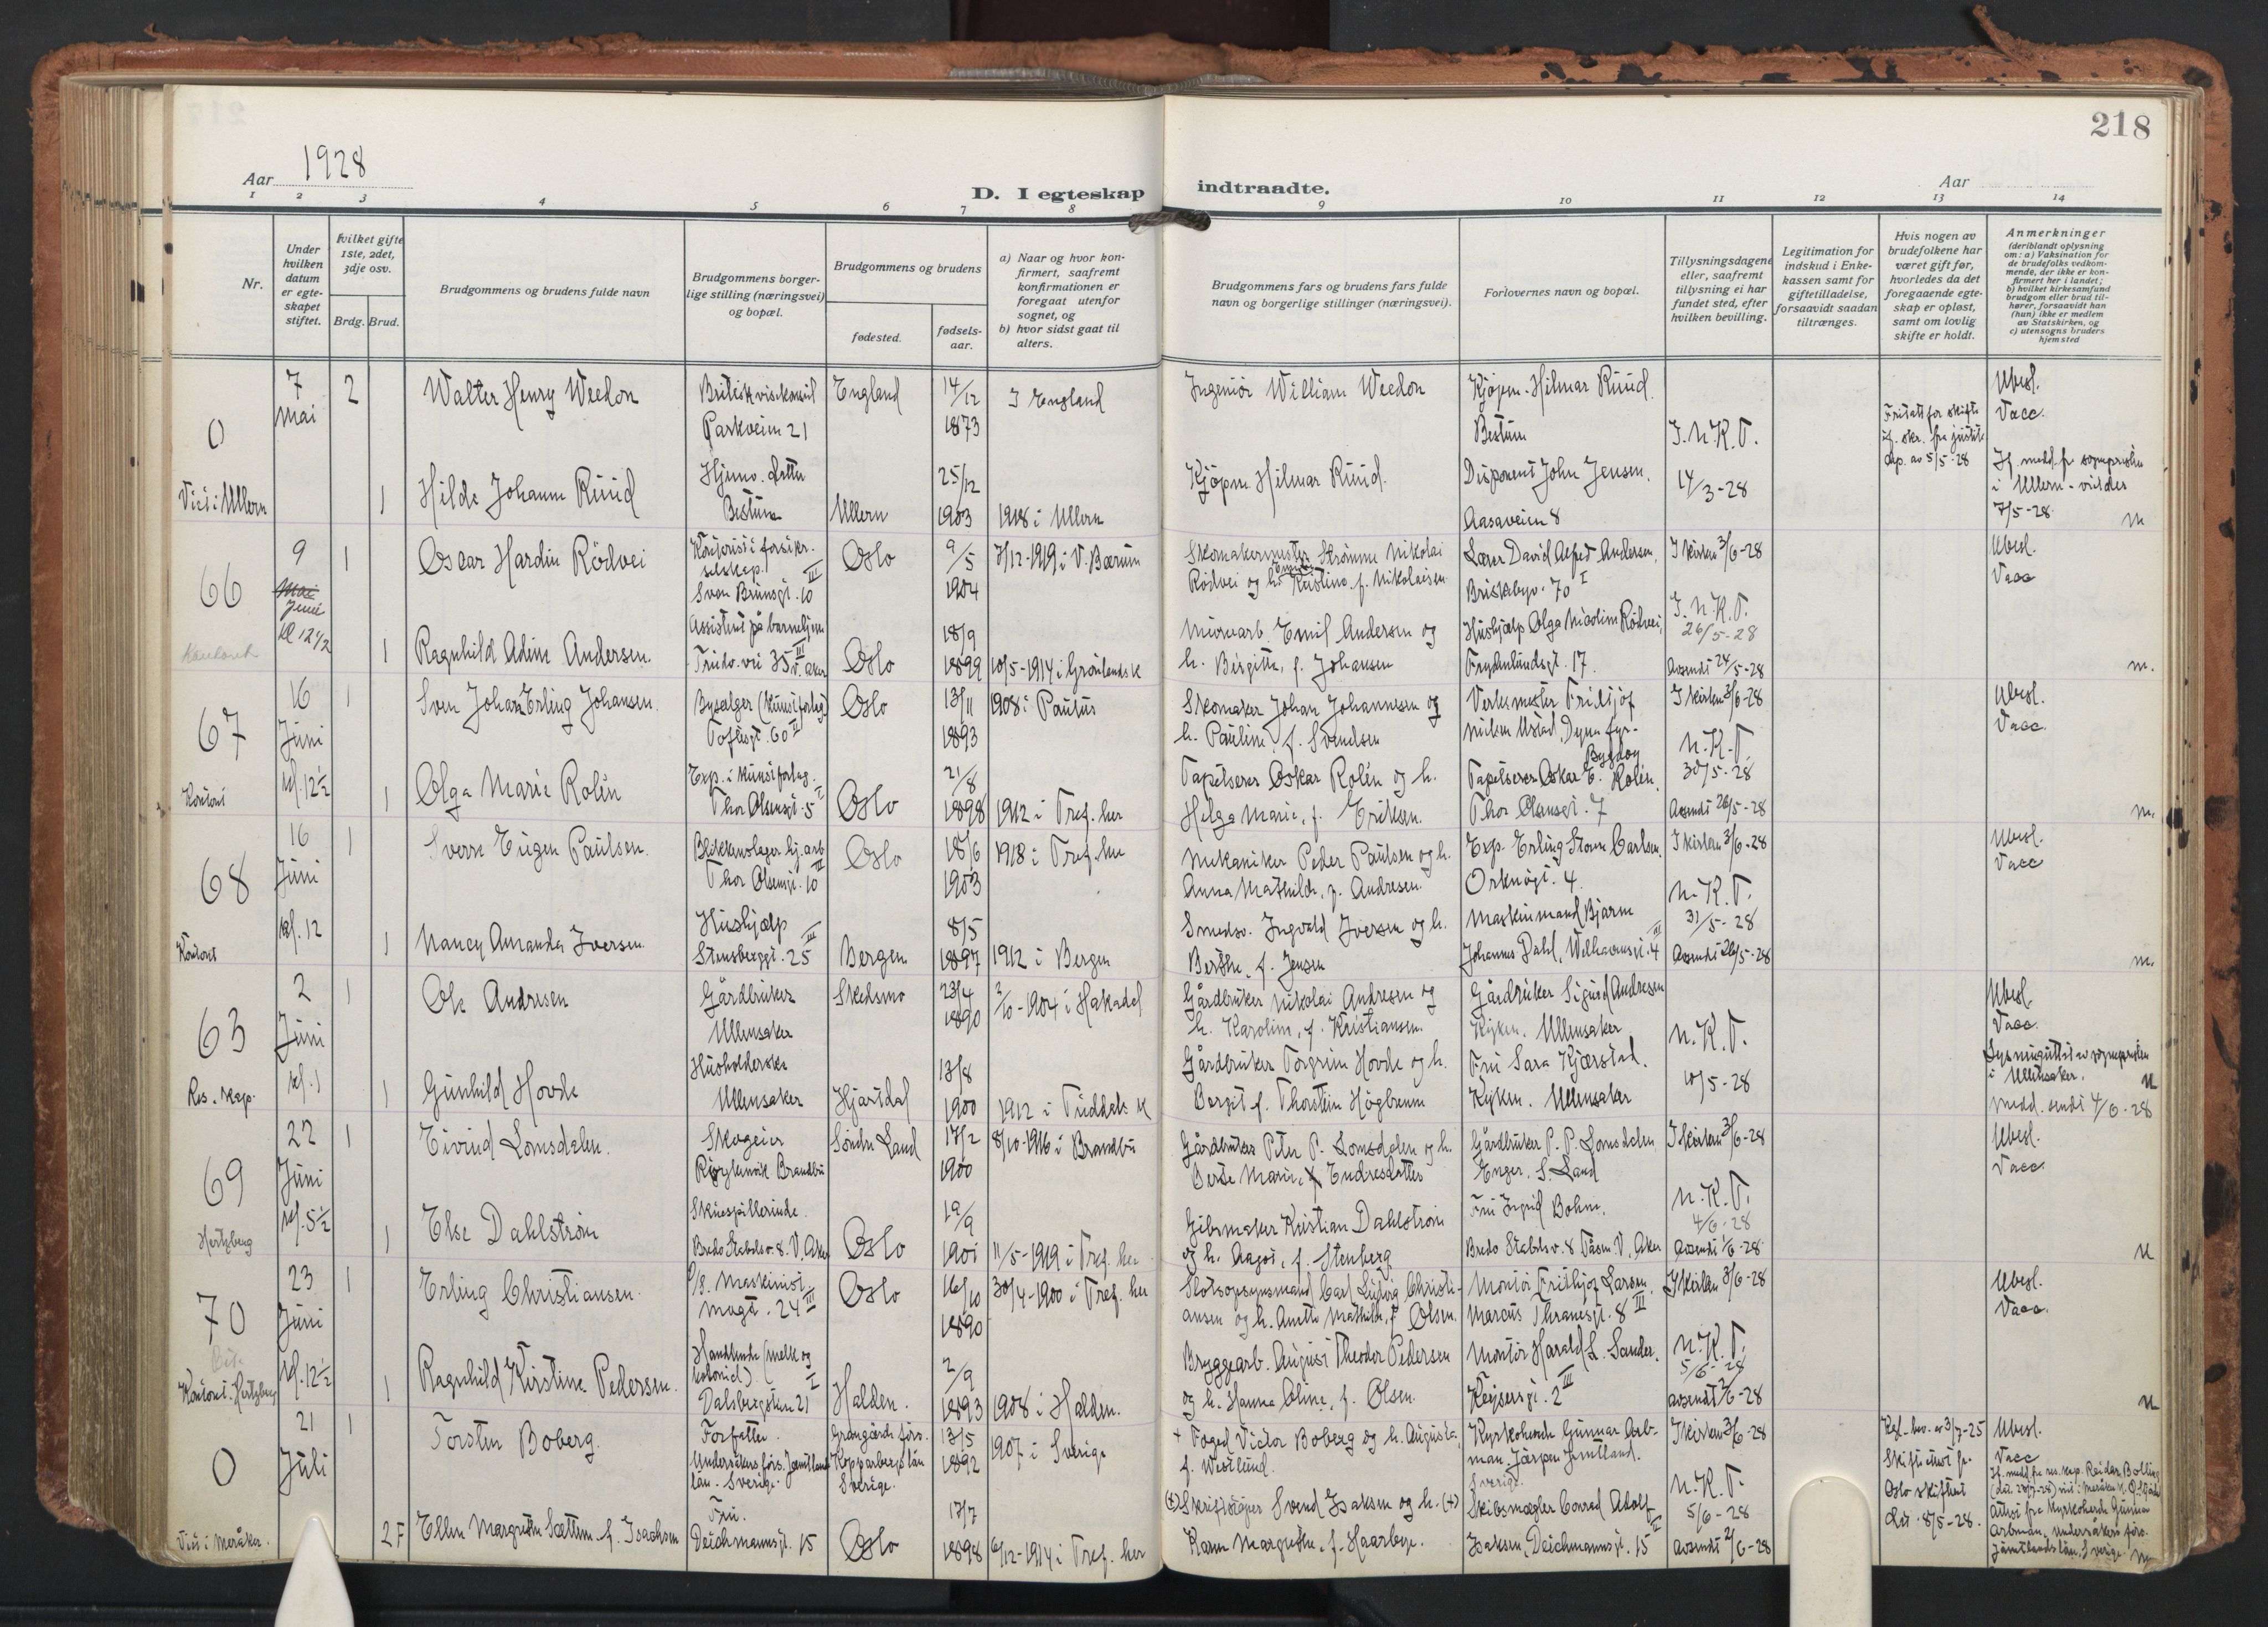 218
Aar 1928
D. I egteskap indtraadte.
Aar
1 2 3 4 5 6 7 8 9 10 11 12 13 14
Nr.
Under hvilken datum er egte-skapet stiftet.
hvilket gifte 1ste, 2det, 3dje osv.
Brdg. Brud.
Brudgommens og brudens fulde navn
Brudgommens borger-
lige stilling (næringsvei)
og bopæl.
Brudgommens og brudens
fødested.
fødsels-
aar.
a) Naar og hvor kon-
firmert, saafremt
konfirmationen er
foregaat utenfor
sognet, og
b) hvor sidst gaat til
alters.
Brudgommens fars og brudens fars fulde
navn og borgerlige stillinger (næringsvei).
Forlovernes navn og bopæl.
Tillysningsdagene
eller, saafremt
tillysning ei har
fundet sted, efter
hvilken bevilling.
Legitimation for
indskud i Enke-
kassen samt for
giftetilladelse,
forsaavidt saadan
tiltrænges.
Hvis nogen av
brudefolkene har
været gift før,
hvorledes da det
foregaaende egte-
skap er opløst,
samt om lovlig
skifte er holdt.
Anmerkninger
(deriblandt oplysning
om: a) Vaksination for
de brudefolks vedkom-
mende, der ikke er kon-
firmert her i landet;
b) hvilket kirkesamfund
brudgom eller brud til-
hører, forsaavidt han
(hun) ikke er medlem
av Statskirken, og
c) utensogns bruders
hjemsted
0
7 Mai
2
Walter Henry Weedon
Britisk visekonsul
Parkveien 21
England
14/12 1873
I England
Ingeniör William Weedon
Kjöpm. Hilmar Ruud
Bestum
J. N. K. T.
14/3-28
Fritatt for skifte
if. skr. fra justits
dep. av 5/5-28
Ubesl.
Vacc.
Viet i Ullern
1
Hilda Johanne Ruud
Hjemv. datter
Bestum
Ullern
25/12 1903
1918 i Ullern
Kjöpm. Hilmar Ruud.
Disponent John Jensen.
Aasaveien 8
If. medd. fr. sognepresten
i Ullern - viet der
7/5-28
66
9 Juni
kl 12 1/2
1
Oscar Hardin Rödvei
Kontorist i forsikr.
selskap.
Sven Brunsgt. 10 III
Oslo
9/5 1904
7/12-1919 i V. Bærum
Skomakermester Strömme Nikolai
Rödvei og h. Kristine f. Nikolaisen
Lærer David Alfred Andersen,
Briskebyv. 70 I
I kirken 3/6-28
J. N. K. T.
26/5-28
Avsendt 24/5-28
Ubesl.
Vacc
1
Ragnhild Adine Andersen.
Assistent på barnehjem
Oslo
18/9 1899
10/5-1914 i Grönlands k
Murerarb. Emil Andersen og
h. Birgitte, f. Johansen
Hushjelp Olga Nicoline Rödvei,
Frydenlundsgt. 17.
m.
67
16 Juni
kl. 12 1/2
Kontoret
1
Sven Johan Erling Johansen.
Bysælger (kunstforlag)
Toftesgt. 60 II
Oslo
13/11 1893
1908 i Paulus
Skomaker Johan Johannesen og
h. Pauline, f. Svendsen
Verksmester Fridtjof
Nielsen Ustad, Dyna fyr-
Bygdøy
I kirken 3/6-28
N. K. T.
30/5-28
Avsendt 26/5-28
Ubesl.
Vacc.
1
Olga Marie Rolén
Exp. i kunstforlag.
Thor Olsensgt. 5
Oslo
21/8 1898
1912 i Tref. her
Tapetserer Oskar Rolén og h.
Helga Marie, f. Eriksen.
Tapetserer Oskar E. Rolén,
Thor Olsensgt. 7
m.
68
16 Juni
kl. 12
Kontoret
1
Sverre Eugen Paulsen.
Blikkenslager hj. arb.
Thor Olsensgt. 10 III
Oslo
18/6 1903
1918 i Tref. her
Mekaniker Peder Paulsen og h.
Anna Mathilde, f. Andresen.
Exp. Erling Storm Carlsen,
Orknögt. 4.
I kirken 3/6-28
N. K. T.
31/5-28
Avsendt 26/5-28
Ubesl.
Vacc
1
Nancy Amanda Iversen.
Hushjælp
Stensberggt. 25 III
Bergen
8/5 1897
1912 i Bergen
Smedsv. Ingvald Iversen og h.
Berthe, f. Jensen
Maskinmand Bjarne
Johannes Dahl, Welhavensgt. 4 III
m.
63
2 Juni
kl. 1
Res. kap.
1
Ole Andresen
Gårdbruker
Ullensaker
Skedsmo
23/4 1890
2/10-1904 i Hakadal
Gårdbruker Nikolai Andresen og
h. Karoline, f. Kristiansen.
Gårdbruker Sigurd Andresen
Kyken. Ullensaker
N. K. T.
10/5-28
Ubesl.
Vacc.
1
Gunhild Hovde
Husholderske
Ullensaker
Hjartdal
13/8 1900
1912 i Tuddals k
Gårdbruker Torgrim Hovde og h.
Bergit f. Thorstein Högbrenn
Fru Sara Kjærstad.
Kyken. Ullensaker
Lysningsattest av sognepresten
i Ullensaker.
Medd. sendt 4/6-28
69
22 Juni
kl. 5 1/2
Hertzberg
1
Eivind Lomsdalen.
Skogeier
Röykenvik Brandbu
Söndre Land
17/2 1900
8/10-1916 i Brandbu
Gårdbruker Peter P. Lomsdalen og h.
Berte Marie, Endresdatter
Gårdbruker P. P. Lomsdalen
Enger. S. Land
I kirken 3/6-28
N. K. T.
4/6-28
Avsendt 1/6-28
Ubesl.
Vacc.
1
Else Dahlström
Skuespillerinde.
Bredo Stabelsv. 8. V. Aker
Oslo
19/9 1901
11/5-1919 i Tref. her
Gibsmaker Kristian Dahlström
og h. Aagot, f. Stenberg
Fru Ingrid Bohm,
Bredo Stabelsv. 8 Tåsen V. Aker
70
23 Juni
kl. 12 1/2
Kontoret. Hertzberg
1
Erling Christiansen.
Maskinist
Mogt. 24 III
Oslo
16/10 1890
30/4-1900 i Tref. her
Slotsopsynsmand Carl Ludvig Christi-
ansen og h. Anette Mathilde, f. Olsen.
Montör Frithjof Larsen
Marcus Thranesgt. 8 III
I kirken 3/6-28
N. K. T.
5/6-28
avsendt 2/6-28
Ubesl.
Vacc.
1
Ragnhild Kirstine Pedersen.
Handlende (melk og
kolonial).
Dalsbergstien 21 I
Halden.
2/9 1893
1908 i Halden.
Bryggearb. August Theodor Pedersen
og h. Hanna Oline, f. Olsen.
Montör Harald L. Sander.
Keysersgt. 2 III
0
21 Juli
1
Torsten Boberg.
Forfatter.
Undersåkers förs. Jämtlands
län. Sverige.
Grangärde förs.
Kopparbergs län
Sverige.
13/5 1892
1907 i Sverige
+ Foged Victor Boberg og h. Augusta,
f. Westlund.
Kyrkoherde Gunnar Arb-
man. Järpen Jemtland.
Sverige.
I kirken 3/6-28
N. K. T.
5/6-28
avsendt 2/6-28
Skifteattest fr.
Oslo skifteret
dat. 8/5-28.
Ubesl.
Vacc
If. medd. fr. res. kap. Reidar Bolling
Attest fra Kyrkoherde Gunnar
Arbman, Undersåkers förs.
Jämtlands län, Sverige.
Viet i Meråker.
2 F
Ellen Margrethe Sættem f. Isachsen
Fru.
Deichmannsgt. 15
Oslo
17/7 1898
6/12-1914 i Tref. her
(+) Skriftstöper Svend Isaksen og h. (+)
Karen Margrethe, f. Haarbye.
Skibsmægler Conrad Adolf
Isaksen, Deichmannsgt. 15 III